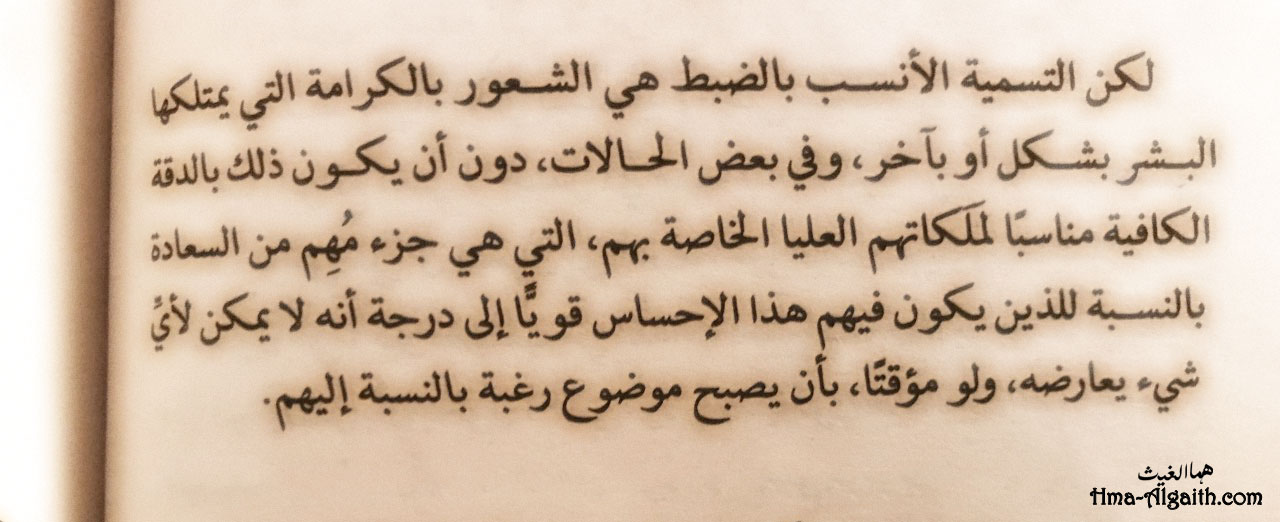 لكن التسمية الأنسب بالضبط هي الشعور بالكرامة التي يمتلكها
البشر بشكل أو بآخر، وفي بعض الحالات، دون أن يكون ذلك بالدقة
الكافية مناسبًا لملَكاتهم العليا الخاصة بهم، التي هي جزء مُهِم من السعادة
بالنسبة للذين يكون فيهم هذا الإحساس قويًّا إلى درجة أنه لا يمكن لأيِّ
شيء يعارضه، ولو مؤقتًا، بأن يصبح موضوع رغبة بالنسبة إليهم.
هما الغيث
Hma-Algaith.com